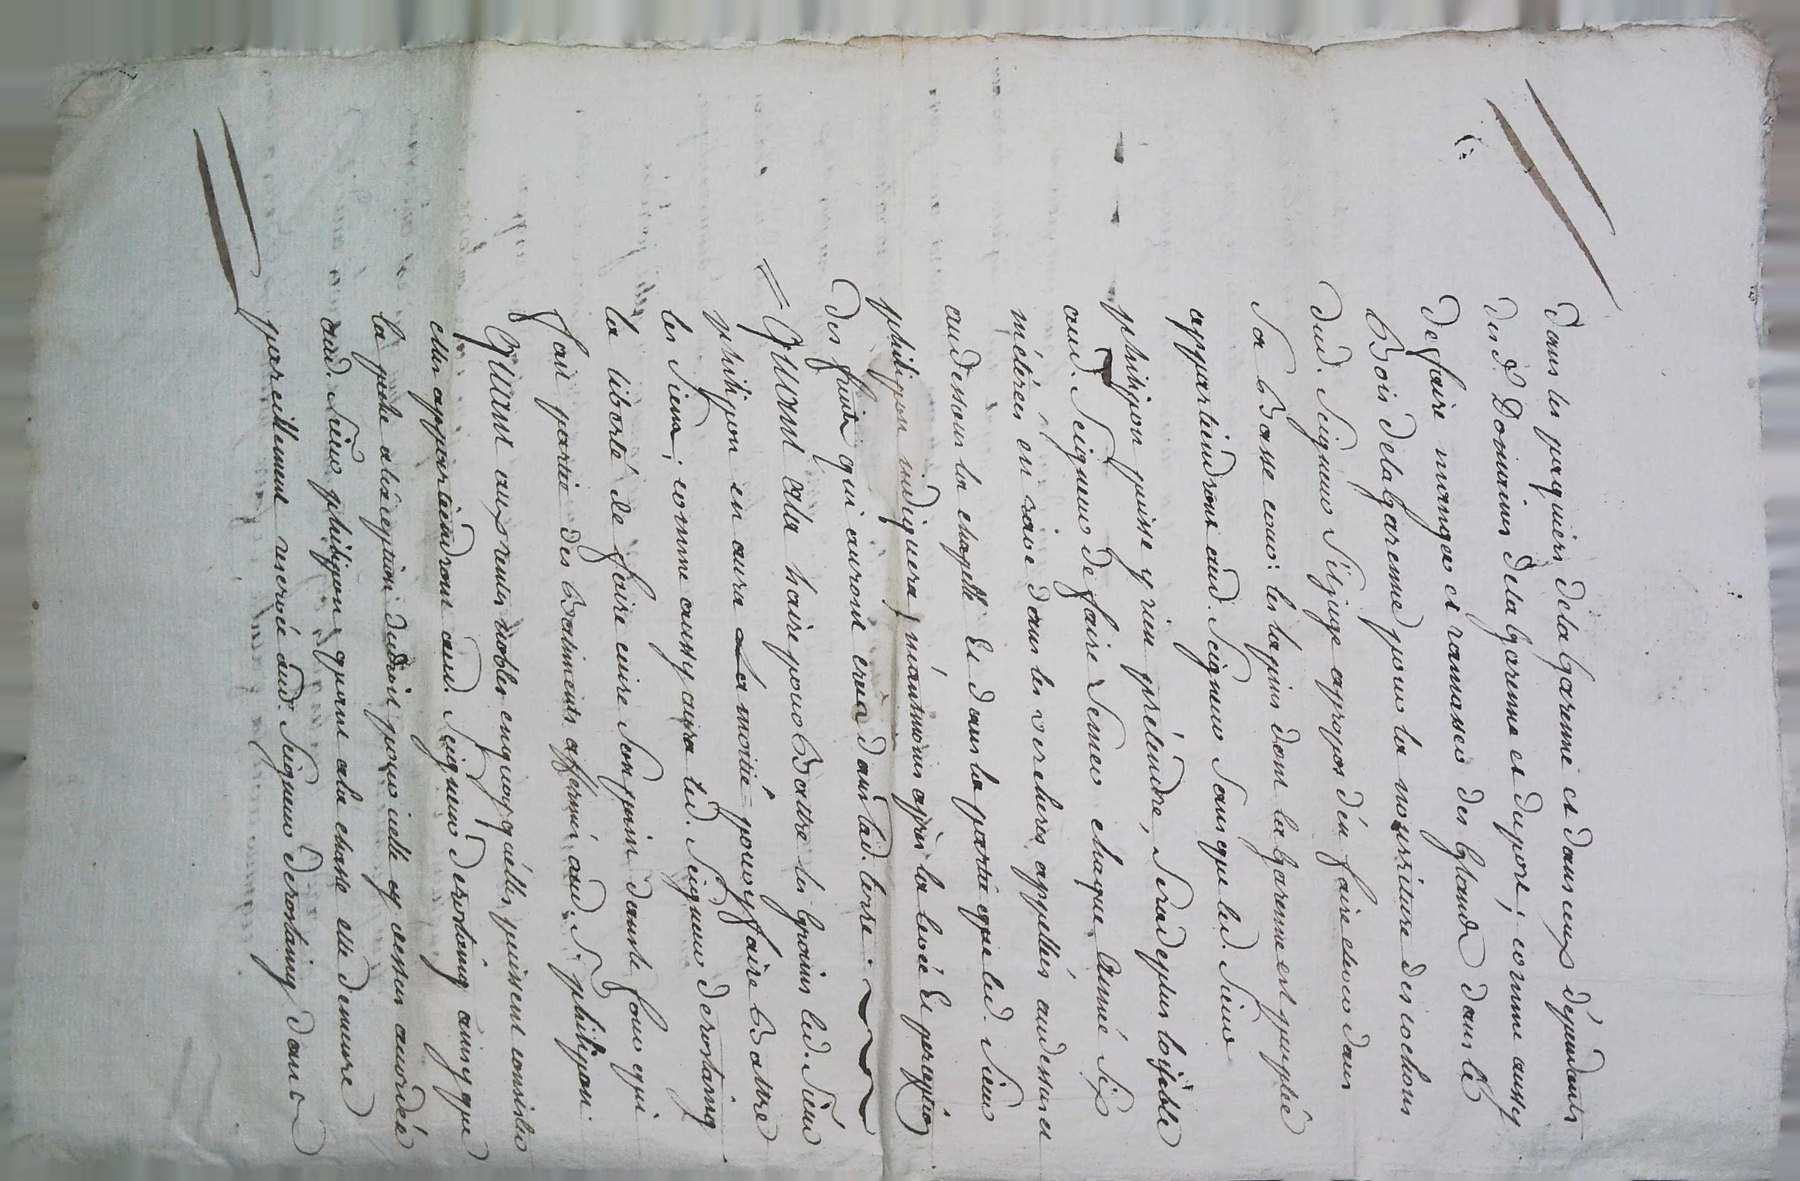 dans les paquiers de la Garenne et dans ceux dépendants
des d. Domaines de la Garenne et duport; comme aussy
de faire manger et ramasser des Glands dans le
Bois de la Garenne pour la nourriture des cochons
dud. Seigneur s'il juge appropos d'en faire elever dans
sa Basse cour: les lapins dont la Garenne est peuplée
appartiendront aud. Seigneur sans que led. Sieur
philipon puisse y rien prétendre, sera de plus loisible
aud. Seigneur de faire semer chaque année six
métérées en rave dans les vercheres appellées audessus et
audessous la chapelle et dans la partie que led. sieur
philipon indiquera, néantmoins après la levée et perception
des fruits qui auront crus dans lad. terre.
Quant ala haire pour Battre les Grains led. Sieur
philipon en aura La moitié pour y faire Battre
les siens, comme aussy aura led. Seigneur derostaing
la liberté de faire cuire son pain dans le four qui
fait partie des Batiments affermés aud. S. philipon.
Quant aux rentes nobles enquoy qu'elles puissent consister
elles appartiendront aud. Seigneur derostaing ainsy que
la peche a l'exeption du droit pour icelle cy dessus accordé
aud. Sieur philipon, quant ala chasse elle demeure
pareillement reservée aud. Seigneur derostaing dans